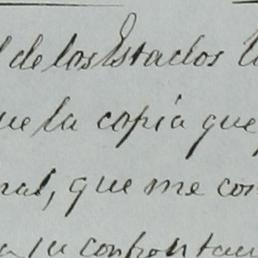 l de los Estados U
ue la copia que
nal, que me con
a su confrontac